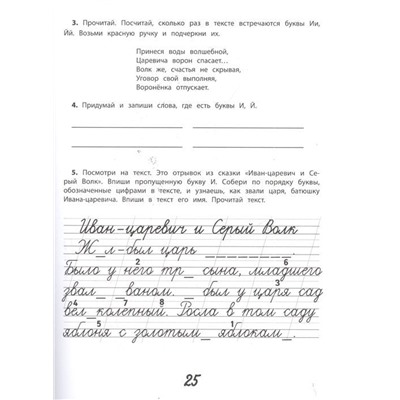 3. Прочитай. Посчитай, сколько раз в тексте встречаются буквы Ии,
Йй. Возьми красную ручку и подчеркни их.
Принеся воды волшебной,
Царевича ворон спасает...
Волк же, счастья не скрывая,
Уговор свой выполняя,
Воронёнка отпускает.
4. Придумай и запиши слова, где есть буквы И, Й.
5. Посмотри на текст. Это отрывок из сказки «Иван-царевич и Се-
рый Волк». Впиши пропущенную букву И. Собери по порядку буквы,
обозначенные цифрами в тексте, и узнаешь, как звали царя, батюшку
Ивана-царевича. Впиши в текст его имя. Прочитай текст.
Иван-царевич и Серый Волк
Ж_л-был царь _________.
Было у него тр_ сына, младшего
2 6
звал_ _ваном. _ был у царя сад
3
вел_колепный. Росла в том саду
4 7 8
яблоня с золотым_ яблокам_.
5 1
25